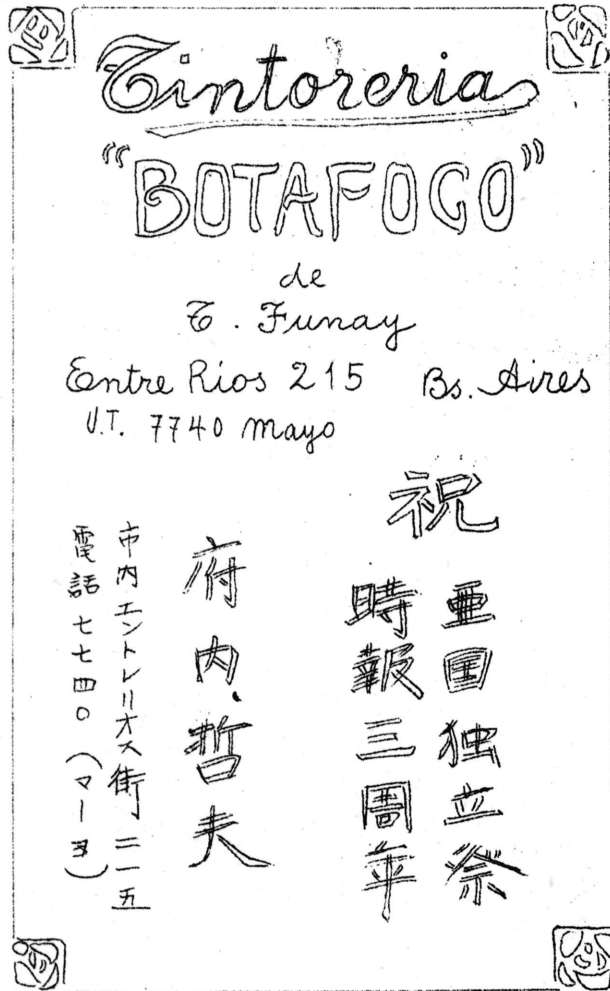 Tintoreria
"BOTAFOGO"
de
T. Funay
Entre Rios 215 Bs. Aires
U.T. 7740 Mayo
祝
亜国独立祭
時報三圕年
府内哲夫
市内エントレリオス街二一五
電話七七四〇(マーヨ)